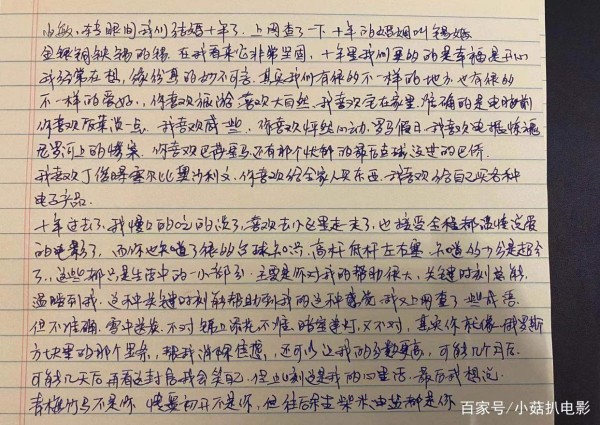 小敏,转眼间我们结婚十年了。上网查了一下十年的婚姻叫锡婚
金银铜铁锡的锡。在我看来它非常坚固,十年里我们要的是幸福是开心
我经常在想,缘份真的妙不可言。其实我们有很的不一样的地方也有很的
不一样的爱好,你喜欢旅游 喜欢大自然,我喜欢宅在家里,准确的是电脑前
你喜欢饭菜淡一点,我喜欢咸一些,你喜欢怦然心动、罗马假日,我喜欢电锯惊魂
尼罗河上的惨案,你喜欢巴蒂 还有那个
我喜欢丁俊晖塞尔比奥沙利文,你喜欢给全家人买东西,我喜欢给自己买各种
电子产品。
十年过去了,我慢慢的吃的淡了,喜欢去小区里走一走了,也接受全程都温情浪漫
的电影了,而你也知道了很的台球知识,高杆低杆左右塞,知道的分是超分
了,这些都只是生活中的一小部分,主要是你对我的帮助很大,关键时刻总能
温暖到我,这种关键时刻能帮助到我的这种感觉,我又上网查了一些成语
但不准确,雪中送炭,不对 锦上添花不准,暗室逢灯,又不对,其实你就像俄罗斯
方块里的那个竖条,帮我消除焦虑,还可以让我的分数更高,可能几个月后
可能几天后再看这封信我会笑自己,但此刻这是我的心里话,最后我想说:
青梅竹马不是你 情窦初开不是你,但往后余生柴米油盐都是你
百家号/小菇扒电影